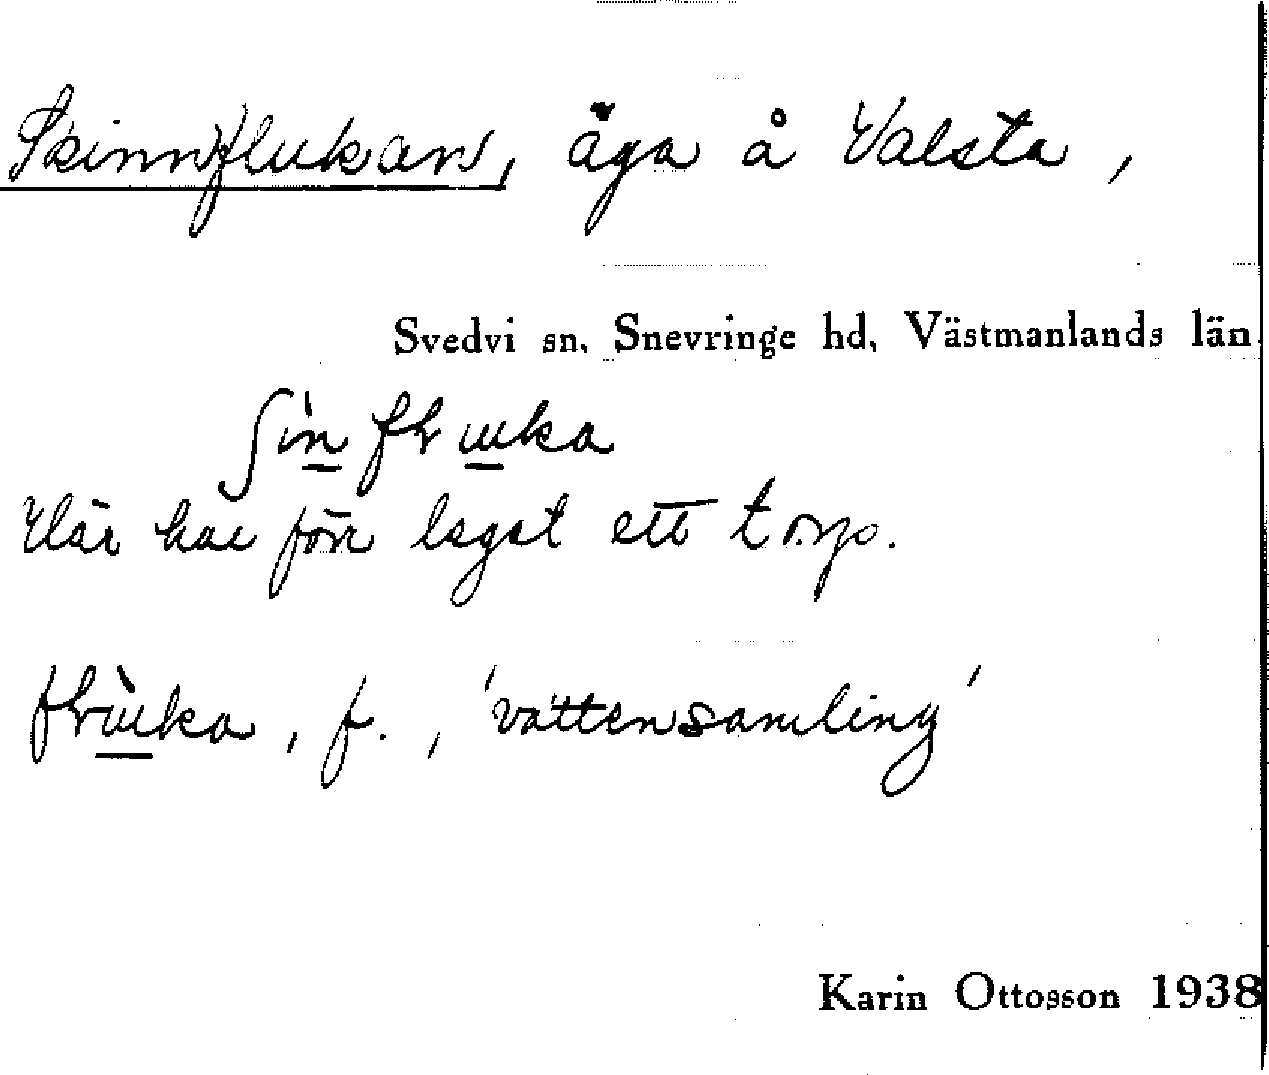 Skinnflukan, äga å Valsta,
Svedvi sn, Snevringe hd, Västmanlands län.
Här har förr legat ett torp.
f., 'vattensamling'
Karin Ottosson 1938